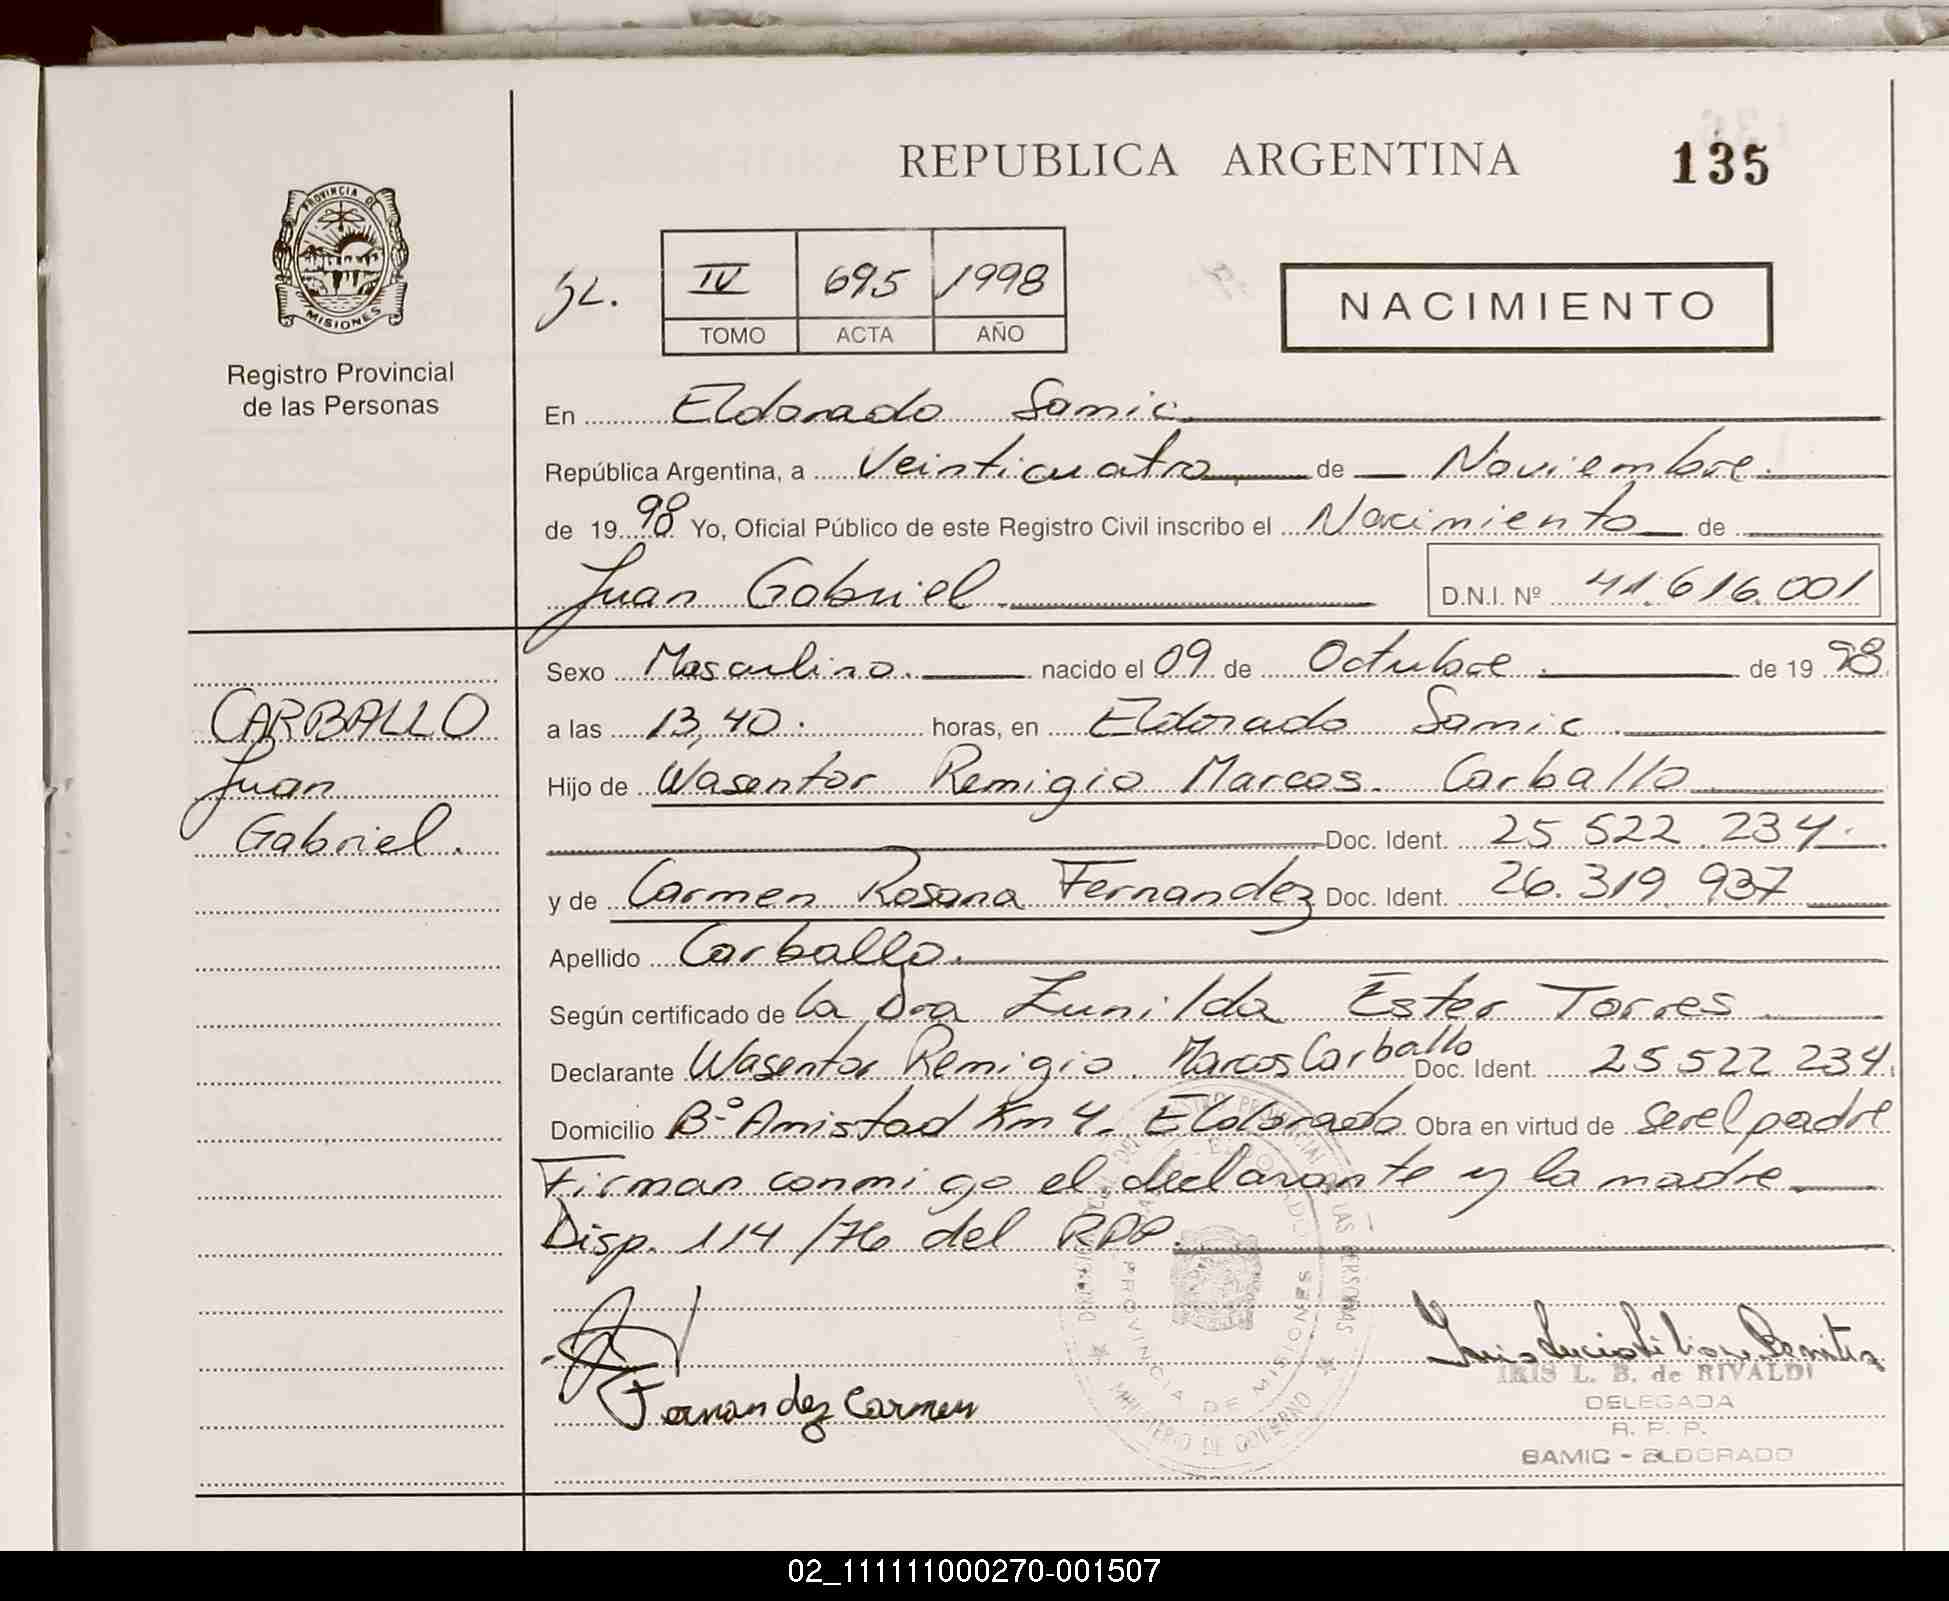 REPUBLICA ARGENTINA
135
PROVINCIA DE
MISIONES
Registro Provincial
de las Personas
IV 695 1998
TOMO ACTA AÑO
NACIMIENTO
En Eldorado Samic
República Argentina, a Veinticuatro de Noviembre
de 1998 Yo, Oficial Público de este Registro Civil inscribo el Nacimiento de
Juan Gabriel D.N.I. Nº 41.616.001
Sexo Masculino. nacido el 09 de Octubre de 1998
CARBALLO
Juan
Gabriel.
a las 13,40. horas, en Eldorado Samic
Hijo de Wasentor Remigio Marcos Carballo
Doc. Ident. 25 522 234.
y de Carmen Rosana Fernandez Doc. Ident. 26.319.937
Apellido Carballo.
Según certificado de la Dra Zunilda Ester Torres
Declarante Wasentor Remigio Marcos Carballo Doc. Ident. 25 522 234.
Domicilio Bº Amistad Km 4. Eldorado Obra en virtud de ser el padre
Firman conmigo el declarante y la madre
Disp. 114/76 del RPP.
Fernandez Carmen
PROVINCIA DE MISIONES
MINISTERIO DE GOBIERNO
IRIS L. B. de RIVALDI
DELEGADA
R. P. P.
SAMIC - ELDORADO
02_111111000270-001507